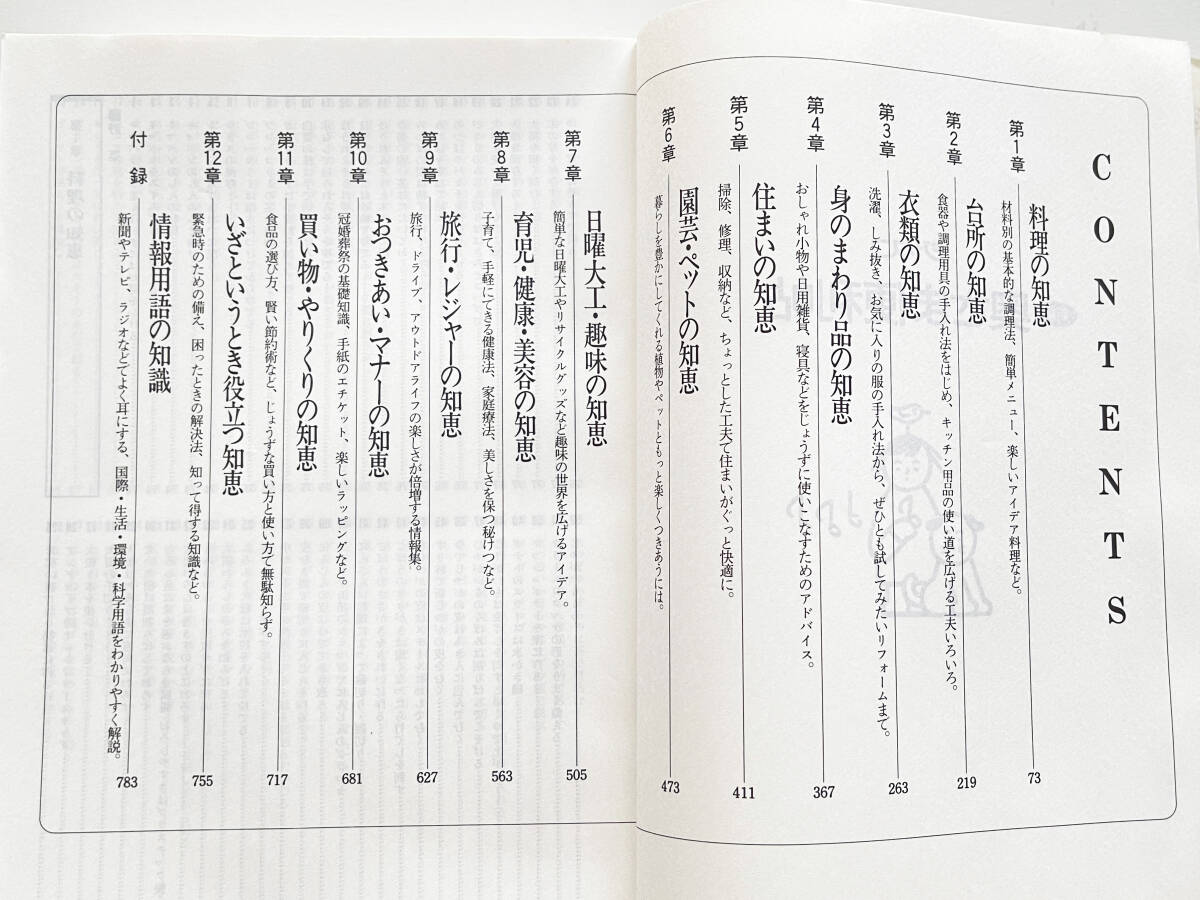 CONTENTS
第1章
料理の知恵
材料別の基本的な調理法、簡単メニュー、楽しいアイデア料理など。
73
第2章
台所の知恵
食器や調理用具の手入れ法をはじめ、キッチン用品の使い道を広げる工夫いろいろ。
219
第3章
衣類の知恵
洗濯、しみ抜き、お気に入りの服の手入れ法から、ぜひとも試してみたいリフォームまで。
263
第4章
身のまわり品の知恵
おしゃれ小物や日用雑貨、寝具などをじょうずに使いこなすためのアドバイス。
367
第5章
住まいの知恵
掃除、修理、収納など、ちょっとした工夫で住まいがぐっと快適に。
411
第6章
園芸・ペットの知恵
暮らしを豊かにしてくれる植物やペットともっと楽しくつきあうには。
473
第7章
日曜大工・趣味の知恵
簡単な日曜大工やリサイクルグッズなど趣味の世界を広げるアイデア。
505
第8章
育児・健康・美容の知恵
子育て、手軽にできる健康法、家庭療法、美しさを保つ秘けつなど。
563
第9章
旅行・レジャーの知恵
旅行、ドライブ、アウトドアライフの楽しさが倍増する情報集。
627
第10章
おつきあい・マナーの知恵
冠婚葬祭の基礎知識、手紙のエチケット、楽しいラッピングなど。
681
第11章
買い物・やりくりの知恵
食品の選び方、賢い節約術など、じょうずな買い方と使い方で無駄知らず。
717
第12章
いざというとき役立つ知恵
緊急時のための備え、困ったときの解決法、知って得する知識など。
755
付録
情報用語の知識
新聞やテレビ、ラジオなどでよく耳にする、国際・生活・環境・科学用語をわかりやすく解説。
783